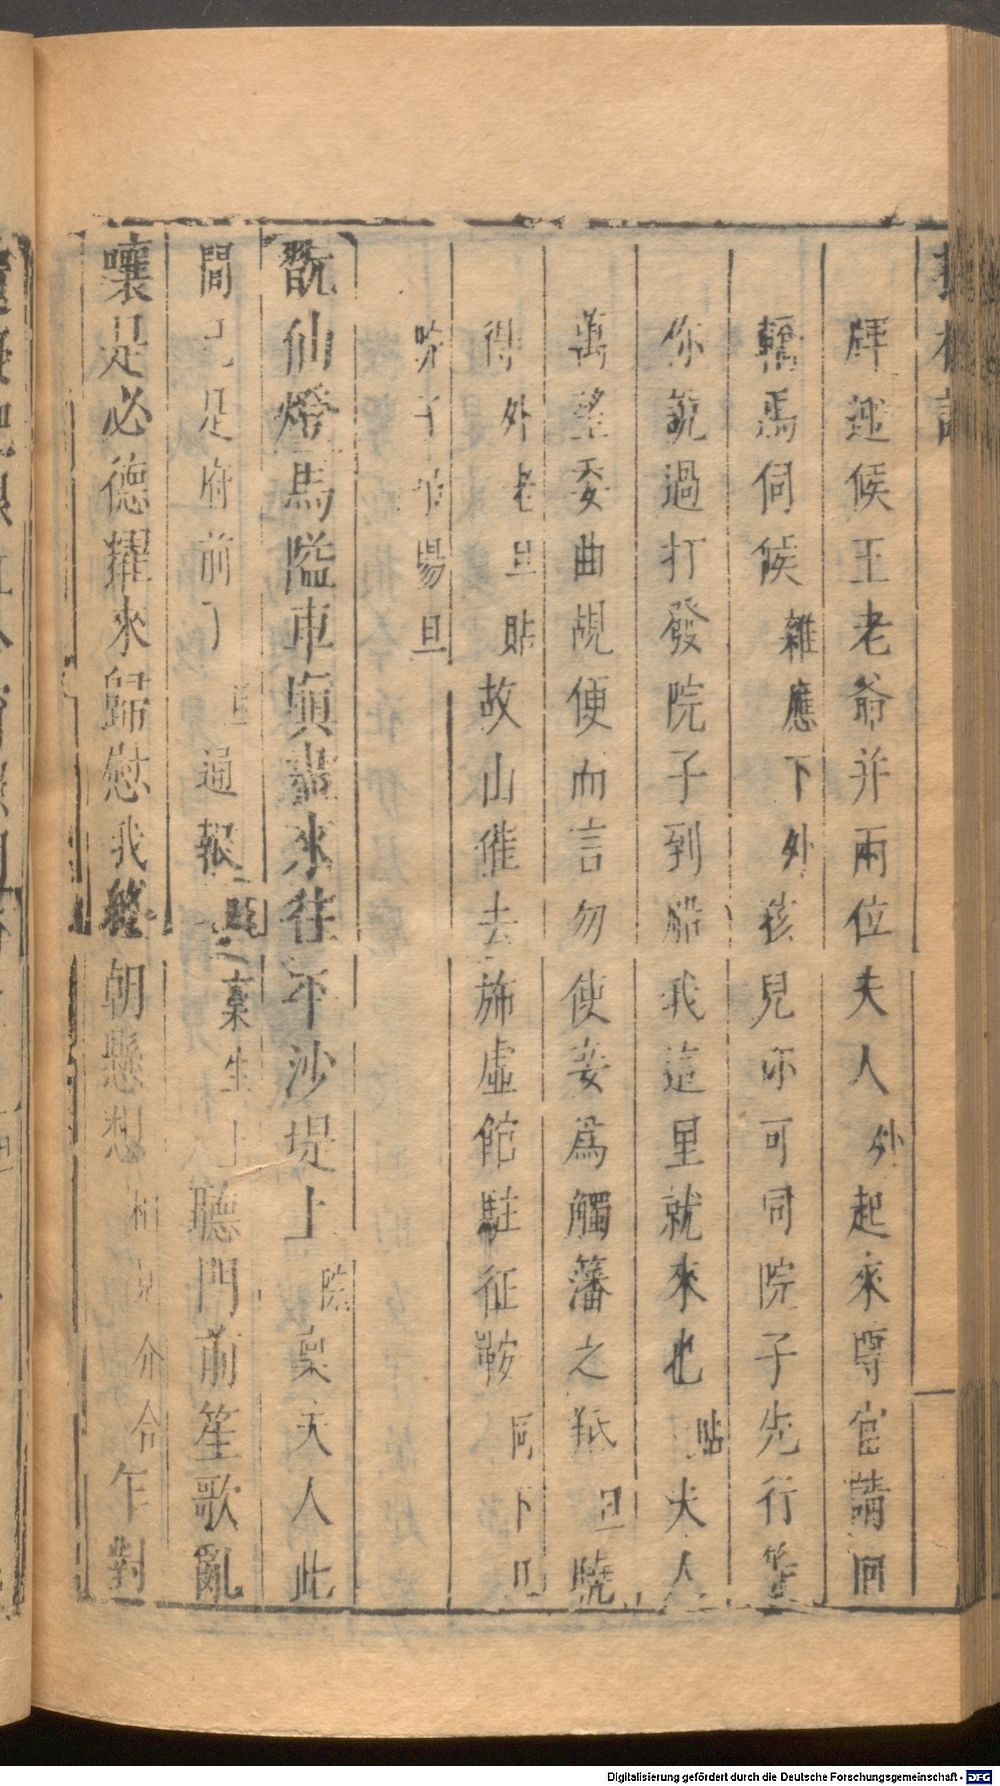 拜迎候王老爺并兩位夫人外起來尊官請回
轎馬伺候雜應下外孩兒你可同院子先行等
你說過打發院子到船我這里就來也貼夫人
萬望委曲覘便而言勿使妾爲觸藩之羝旦曉
得外老旦貼故山催去旆虛館駐征鞍同下
場旦
翫仙燈馬隘車塡盡來往平沙堤上院稟夫人此
間已是府前了通報稟生上聽門前笙歌亂
嚷是必德耀來歸慰我終朝懸想相見介合乍對
Digitalisierung gefördert durch die Deutsche Forschungsgemeinschaft - DFG